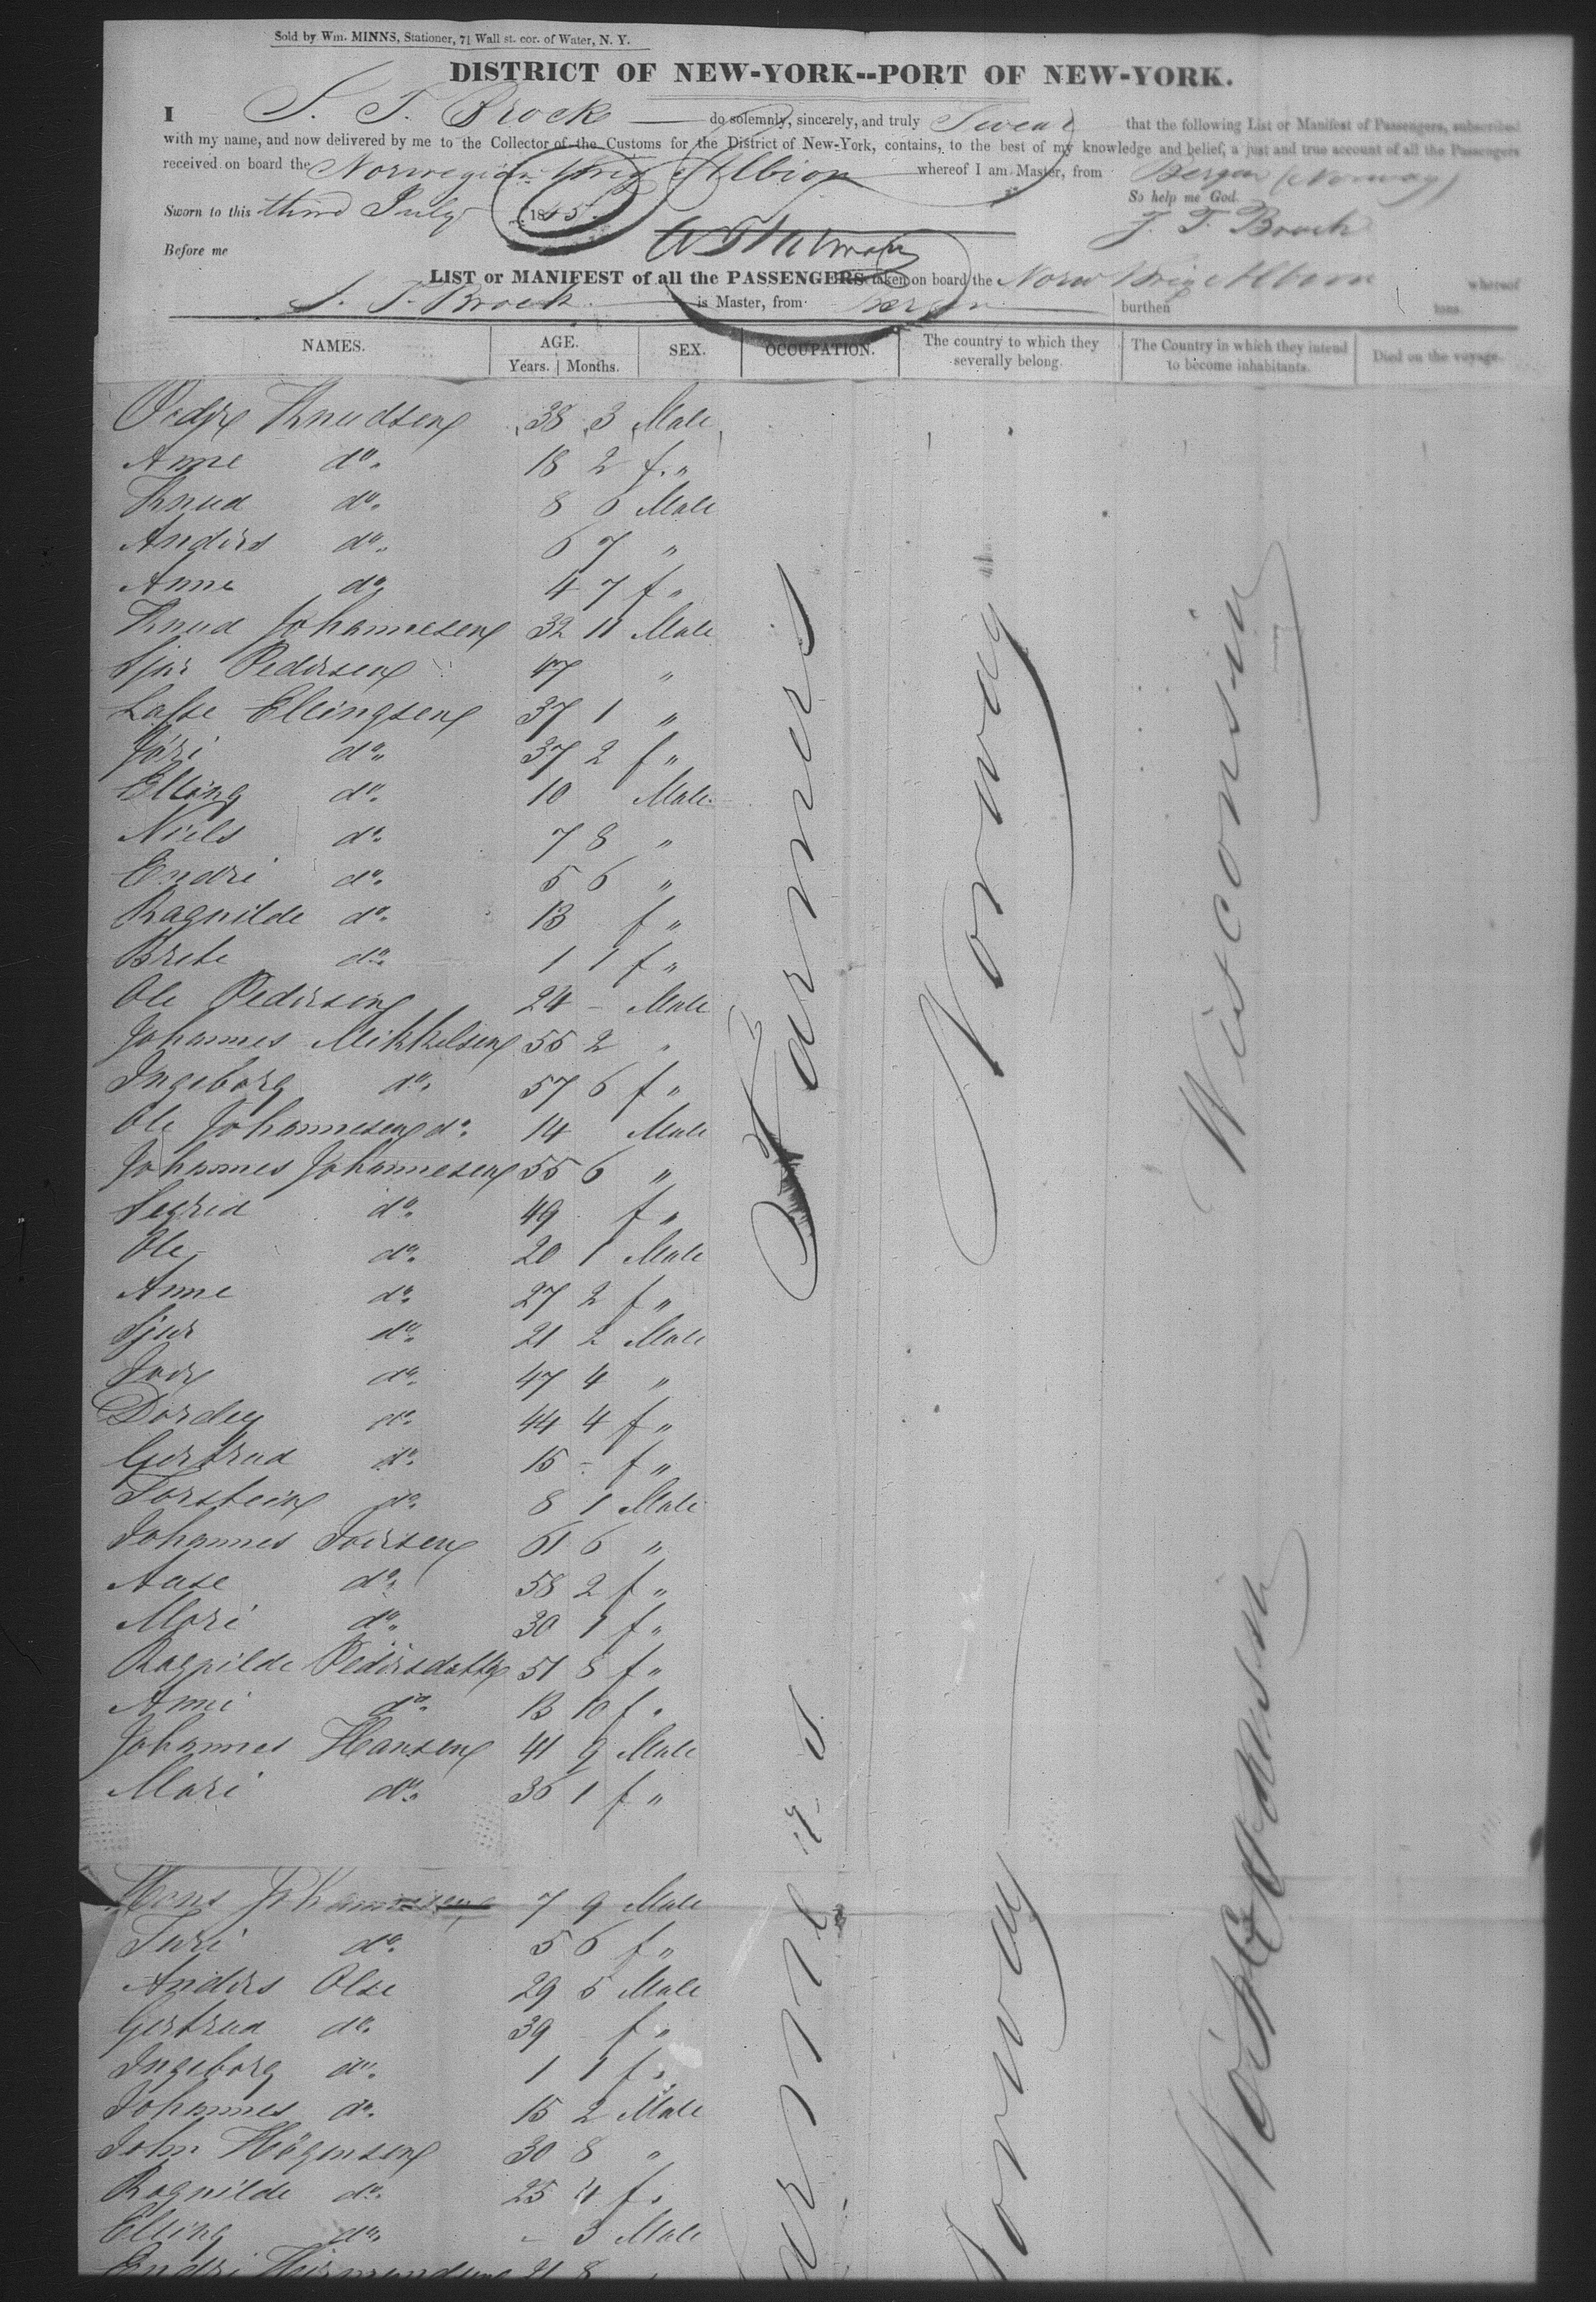 Sold by Wm. MINNS, Stationer, 71 Wall st. cor. of Water, N. Y.
DISTRICT OF NEW-YORK--PORT OF NEW-YORK.
I J. T. Brock do solemnly, sincerely, and truly Swear that the following List or Manifest of Passengers, subscribed
with my name, and now delivered by me to the Collector of the Customs for the District of New-York, contains, to the best of my knowledge and belief, a just and true account of all the Passengers
received on board the Norwegian Brig Albion whereof I am Master, from Bergen (Norway)
Sworn to this third July 1845. So help me God.
J. T. Brock
Before me
LIST or MANIFEST of all the PASSENGERS taken on board the Norw Brig Albion whereof
J. T. Brock is Master, from Bergen burthen tons
NAMES. AGE. SEX. OCCUPATION. The country to which they severally belong. The Country in which they intend to become inhabitants. Died on the voyage.
Years. Months.
Knudsen 38 3 Male
Anne do. 18 2 f. "
Knud do. 8 6 Male
Anders do. 6 7 "
Anne do 4 7 f "
Knud Johannesen 32 11 Male
Sjur Pedersen 47 "
Lasse Ellingsen 37 1 "
Jöri do. 37 2 f "
Elling do. 10 Male
Niels do. 7 8 "
Endre do. 5 6 "
Ragnilde do. 13 f "
Brete do. 1 1 f "
Ole Pedersen 24 - Male
Johannes Mikkelsen 55 2 "
Ingeborg do. 57 6 f "
Ole Johannesen do. 14 Male
Johannes Johannesen 55 6 "
Segrid do. 49 f "
Ole do. 20 1 Male
Anne do. 27 2 f "
Sjur do. 21 2 Male
do. 47 4 "
Dordey do. 44 4 f "
Gertrud do. 15 - f "
Torstein do. 8 1 Male
Johannes Iversen 61 6 "
Aase do. 58 2 f "
Mari do. 30 1 f "
Ragnilde Pedersdatter 51 8 f "
Anne do. 13 10 f "
Johannes Hansen 41 9 Male
Mari do. 36 1 f "
Hans Johannesen 7 9 Male
Turi do. 5 6 f "
Anders Olse 29 5 Male
Gertrud do. 39 f "
Ingeborg do. 1 1 f "
Johannes do. 15 2 Male
John Högensen 30 8 "
Ragnilde do. 25 4 f "
Elling do. - 3 Male
Endre 21 8
Farmers
Norway
Wisconsin
Farmers
Norway
Wisconsin